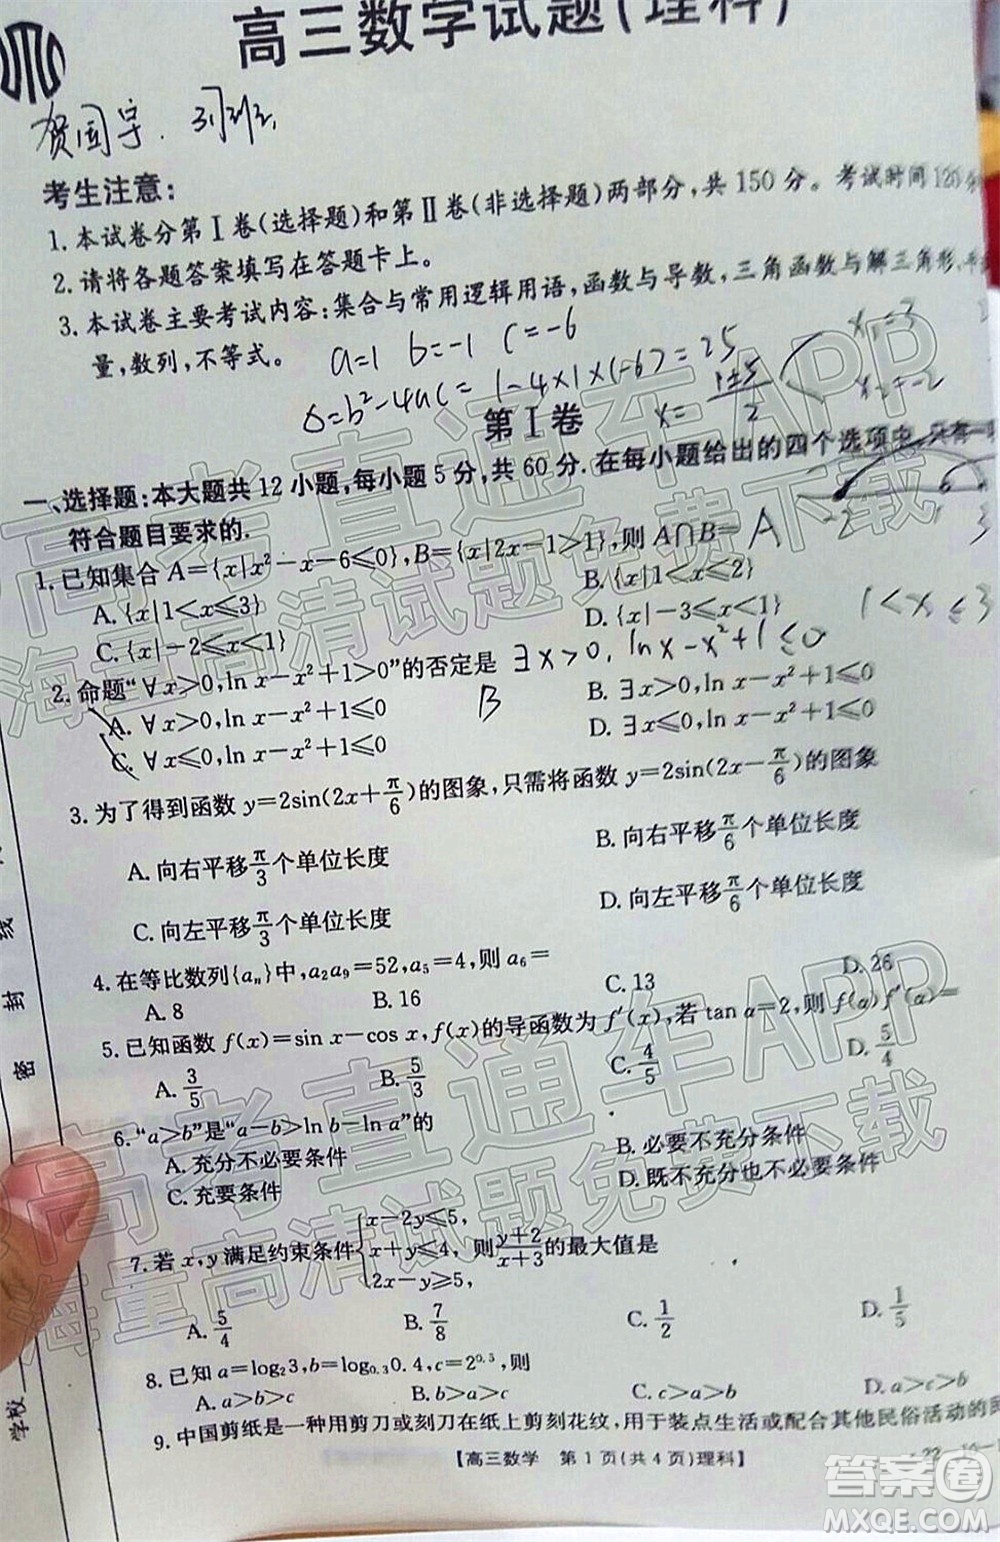 高三数学试题(理科)
贺国宇.
考生注意:
1. 本试卷分第Ⅰ卷(选择题)和第Ⅱ卷(非选择题)两部分,共150分。考试时间120分
2. 请将各题答案填写在答题卡上。
3. 本试卷主要考试内容:集合与常用逻辑用语,函数与导数,三角函数与解三角形,平
量,数列,不等式。
a=1 b=-1 c=-6
Δ=b²-4ac=1-4×1×(-6)=25
x=(1±5)/2
x₁=3
x₂=-2
第Ⅰ卷
一、选择题:本大题共12小题,每小题5分,共60分.在每小题给出的四个选项中,只有一
符合题目要求的.
-2 1 3
1. 已知集合A={x|x²-x-6⩽0},B={x|2x-1>1},则A∩B= A
A. {x|1<x⩽3} B. {x|1<x⩽2}
C. {x|-2⩽x<1} D. {x|-3⩽x<1}
1<x≤3
2. 命题“∀x>0,ln x-x²+1>0”的否定是 ∃x>0,lnx-x²+1≤0
A. ∀x>0,ln x-x²+1⩽0 B. ∃x>0,ln x-x²+1⩽0
B
C. ∀x⩽0,ln x-x²+1⩽0 D. ∃x⩽0,ln x-x²+1⩽0
3. 为了得到函数y=2sin(2x+π/6)的图象,只需将函数y=2sin(2x-π/6)的图象
A. 向右平移π/3个单位长度 B. 向右平移π/6个单位长度
C. 向左平移π/3个单位长度 D. 向左平移π/6个单位长度
4. 在等比数列{aₙ}中,a₂a₉=52,a₅=4,则a₆=
A. 8 B. 16 C. 13 D. 26
5. 已知函数f(x)=sin x-cos x,f(x)的导函数为f′(x),若tan α=2,则f(α)f′(α)=
A. 3/5 B. 5/3 C. 4/5 D. 5/4
6. “a>b”是“a-b>ln b-ln a”的
A. 充分不必要条件 B. 必要不充分条件
C. 充要条件 D. 既不充分也不必要条件
7. 若x,y满足约束条件{x-2y⩽5, x+y⩽4, 2x-y⩾5,则(y+2)/(x+3)的最大值是
A. 5/4 B. 7/8 C. 1/2 D. 1/5
8. 已知a=log₂3,b=log₀.₃0.4,c=2^0.3,则
A. a>b>c B. b>a>c C. c>a>b D. a>c>b
9. 中国剪纸是一种用剪刀或刻刀在纸上剪刻花纹,用于装点生活或配合其他民俗活动的民
【高三数学 第1页(共4页)理科】
线
封
密
学校
高考直通车APP
海量高清试题免费下载
高考直通车APP
海量高清试题免费下载
答案圈
MXQE.COM